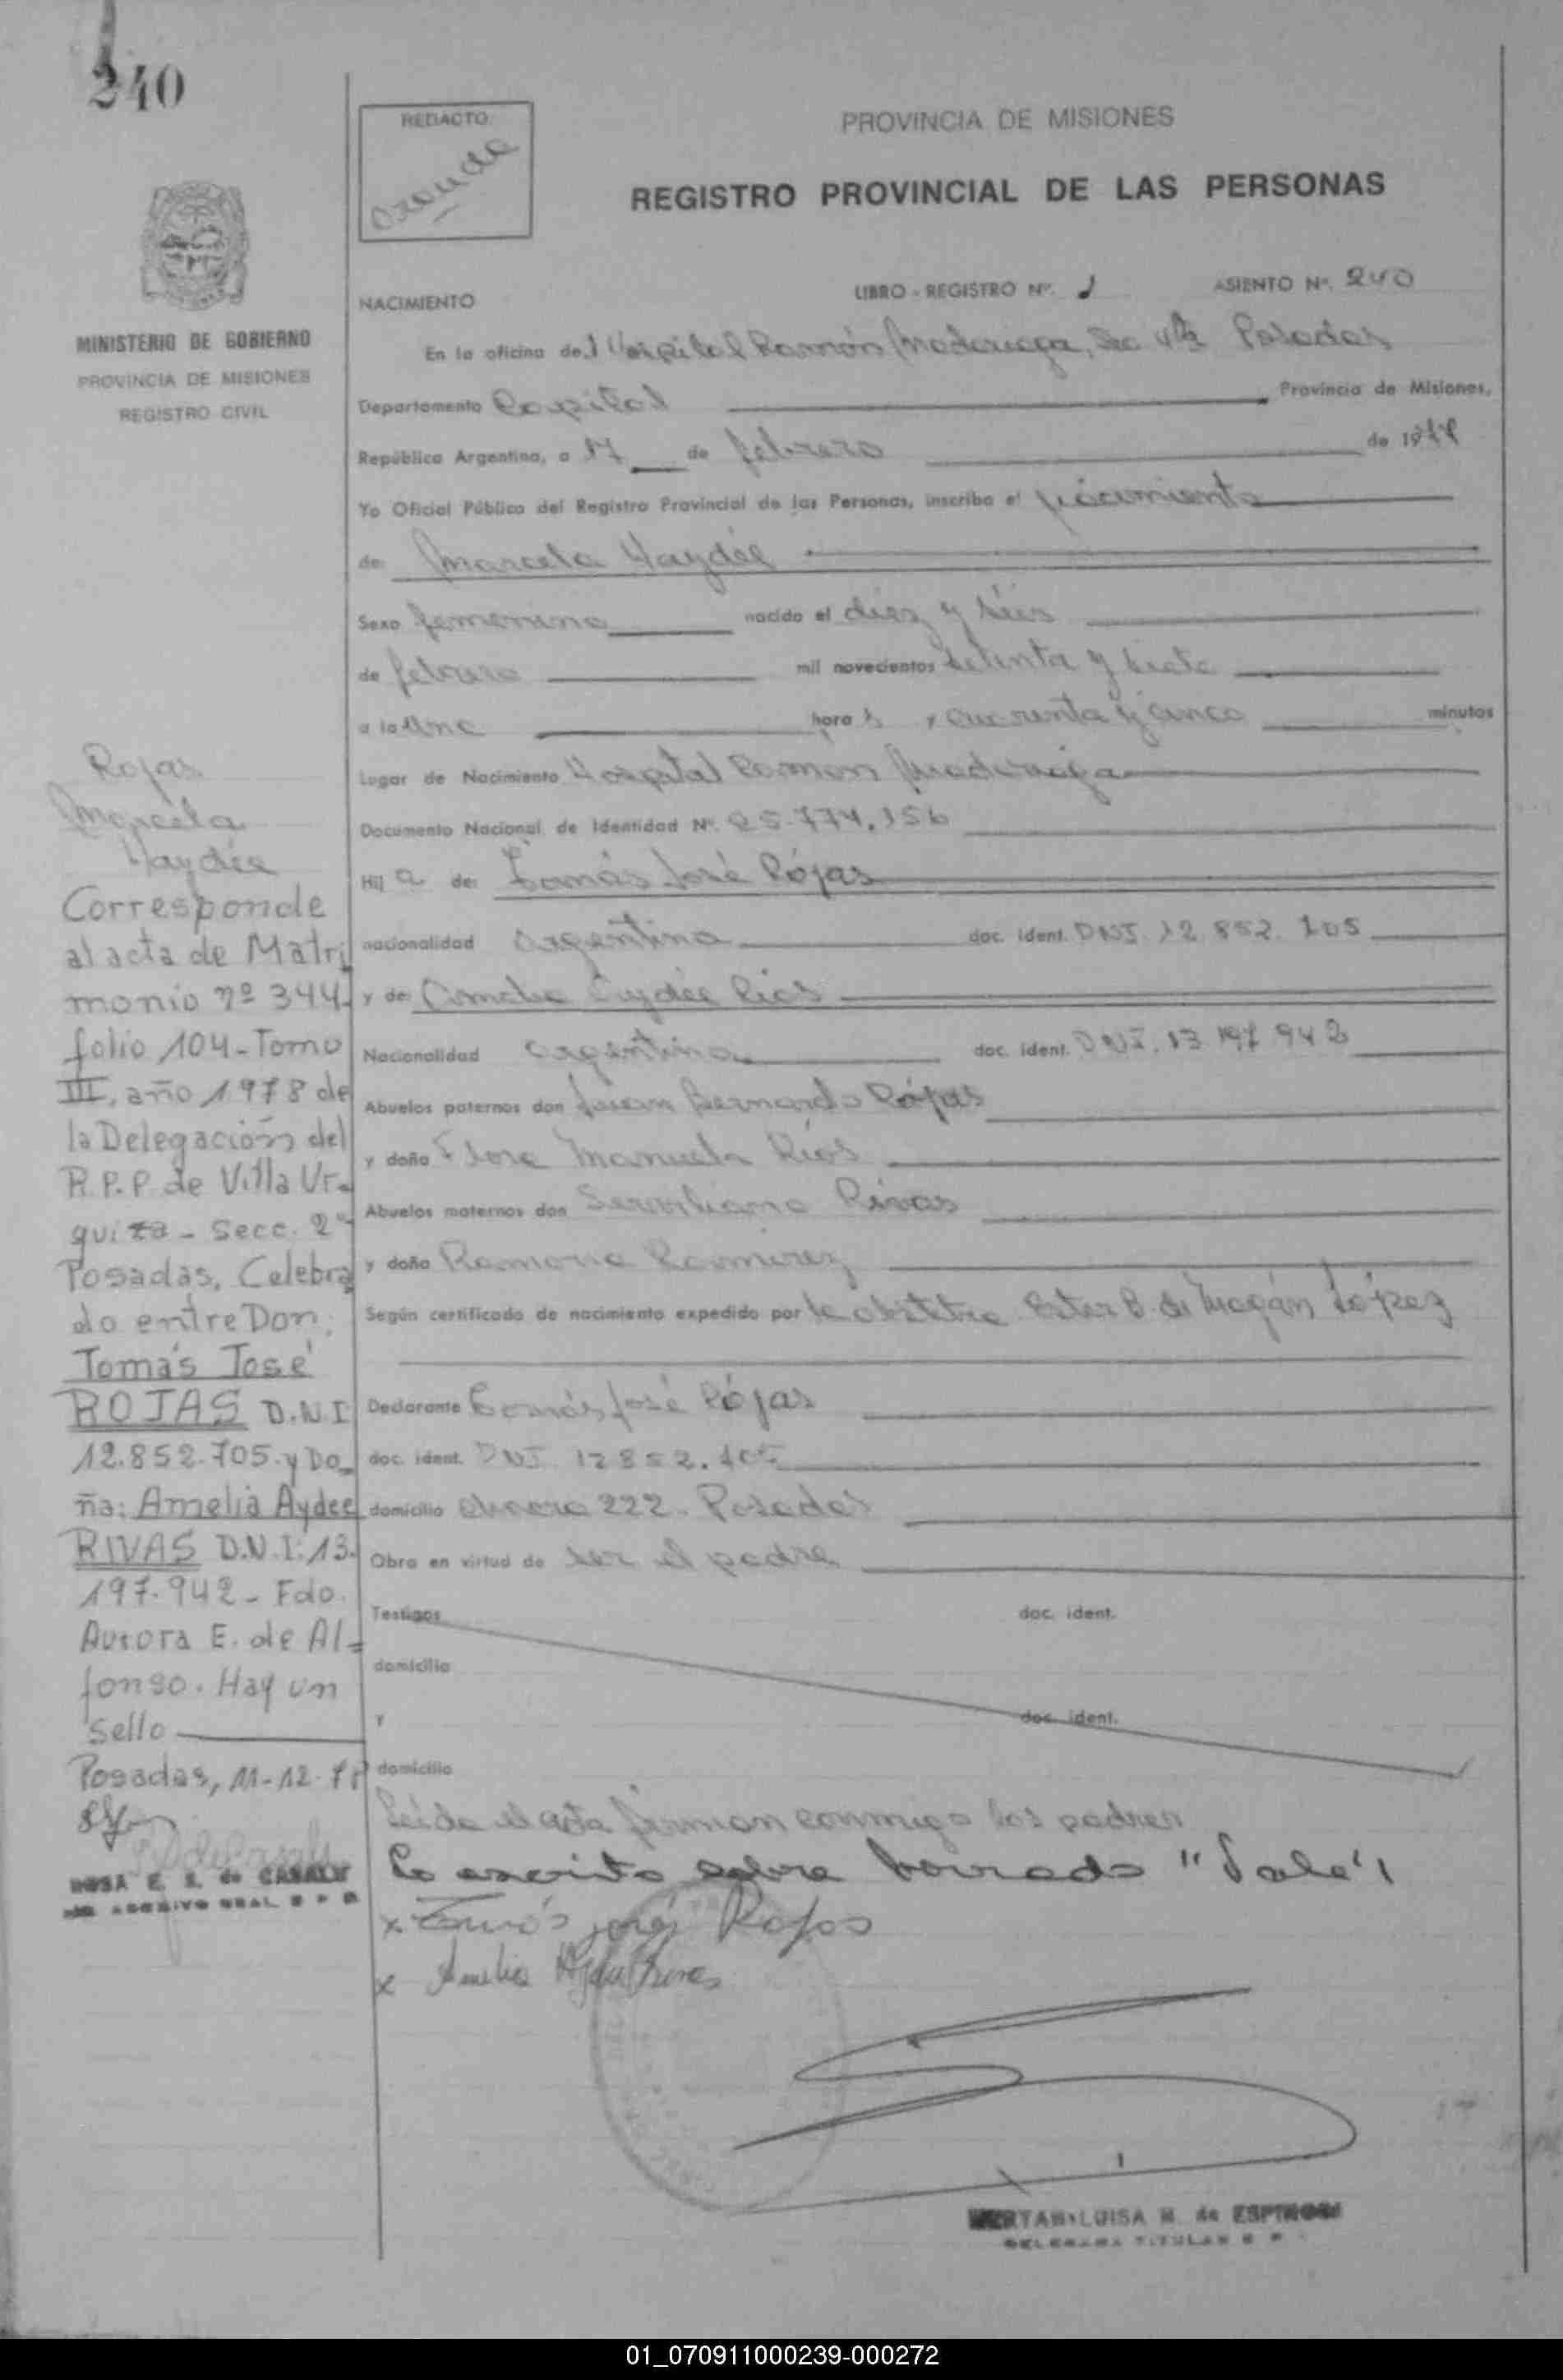 240
REDACTO
PROVINCIA DE MISIONES
REGISTRO PROVINCIAL DE LAS PERSONAS
MINISTERIO DE GOBIERNO
PROVINCIA DE MISIONES
REGISTRO CIVIL
NACIMIENTO
LIBRO - REGISTRO Nº. 1 ASIENTO Nº. 240
En la oficina del Hospital Ramón Madariaga, Sec 4ta Posadas
Departamento Capital Provincia de Misiones,
República Argentina, a 17 de febrero de 1977
Yo Oficial Público del Registro Provincial de las Personas, inscribo el nacimiento
de Marcela Haydée
Sexo femenino nacido el diez y séis
de febrero mil novecientos setenta y siete
a la una hora s y cuarenta y cinco minutos
Lugar de Nacimiento Hospital Ramon Madariaga
Documento Nacional de Identidad Nº. 25.774.156
Hij a de: Tomás José Rójas
nacionalidad argentina doc. ident. DNI. 12.852.705
y de Amelia Aydée
Nacionalidad argentina doc. ident. DNI. 13 197 942
Abuelos paternos don Juan Bernardo Rójas
y doña Flora Manuela Ríos
Abuelos maternos don Rivas
y doña Ramona Ramirez
Según certificado de nacimiento expedido por la obstetra Ester B. de Magán López
Declarante Tomás José Rójas
doc. ident. DNI. 12 852.705
domicilio 222 - Posadas
Obra en virtud de ser el padre
Testigos doc. ident.
domicilio
y doc. ident.
domicilio
Leida el acta firman conmigo los padres
Lo escrito sobre borrado "Vale"
x Tomás José Rojas
x Amelia Aydee Rivas
LUISA M. de ESPINOSA
DELEGADA TITULAR
Rojas
Marcela
Haydée
Corresponde
al acta de Matri
monio nº 344-
folio 104-Tomo
III, año 1978 de
la Delegación del
R.P.P de Villa Ur-
quiza - Secc. 2ª
Posadas, Celebra
do entre Don:
Tomás José
ROJAS D.N.I
12.852.705.y Do-
ña: Amelia Aydee
RIVAS D.N.I:13.
197.942- Fdo.
Aurora E. de Al=
fonso. Hay un
sello
Posadas, 11-12-78
ROSA E. S. de CASALS
01_070911000239-000272